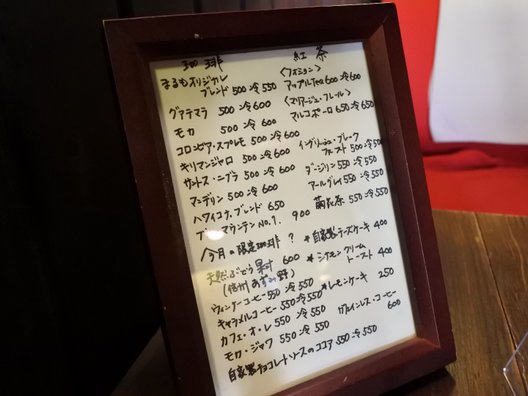 珈琲
まるもオリジナル
ブレンド 500 冷550
グァテマラ 500 冷600
モカ 500 冷600
コロンビア・スプレモ 500 冷600
キリマンジャロ 500 冷600
サントス・ニブラ 500 冷600
マンデリン 500 冷600
ハワイコナ・ブレンド 650
ブルーマウンテンNo.1. 900
今月の限定珈琲 ?
天然ぶどう果汁 600
(信州あずみ野)
ウィンナーコーヒー 550 冷550
キャラメルコーヒー 550 冷550
カフェ・オ・レ 550 冷550
モカ・ジャワ 550 冷550
自家製チョコレートソースのココア 550 冷550
紅茶
〈フォション〉
アップルTea 600 冷600
〈マリアージュ・フレール〉
マルコポーロ 650 冷650
イングリッシュ・ブレーク
ファースト 500 冷500
ダージリン 550 冷550
アールグレイ 550 冷550
菊花茶 550 冷550
*自家製チーズケーキ 400
*シナモンクリーム
トースト 400
*レモンケーキ 250
カフェインレス・コーヒー
600